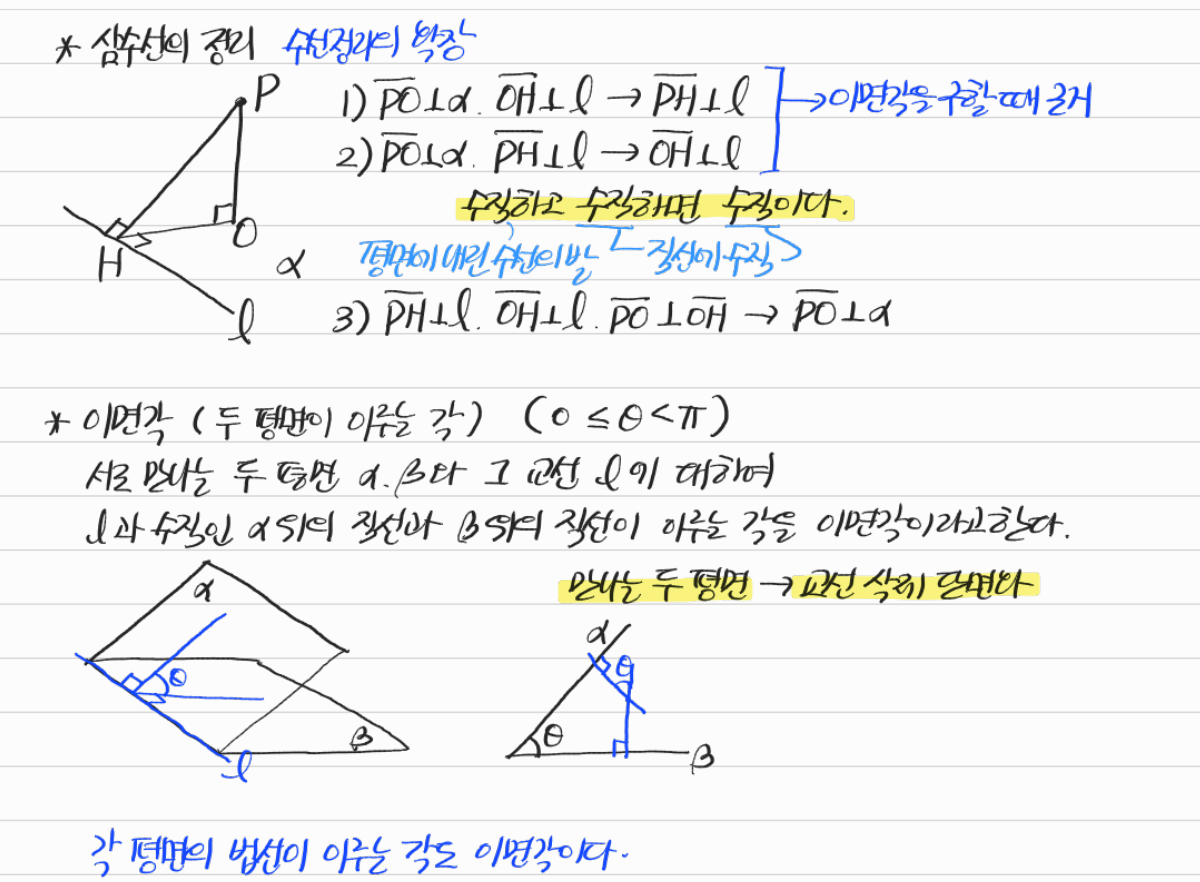 * 삼수선의 정리 수선정리의 확장
P
1) PO⊥α. OH⊥l → PH⊥l → 이면각을 구할 때 근거
2) PO⊥α. PH⊥l → OH⊥l
수직하고 수직하면 수직이다.
O
H
α
평면에 내린 수선의 발 직선에 수직
l
3) PH⊥l. OH⊥l. PO⊥OH → PO⊥α
* 이면각 (두 평면이 이루는 각) (0 ≤ θ < π)
서로 만나는 두 평면 α.β와 그 교선 l에 대하여
l과 수직인 α위의 직선과 β위의 직선이 이루는 각을 이면각이라고한다.
만나는 두 평면 → 교선 삭제 단면화
α
θ
β
l
α
θ
θ
β
각 평면의 법선이 이루는 각도 이면각이다.